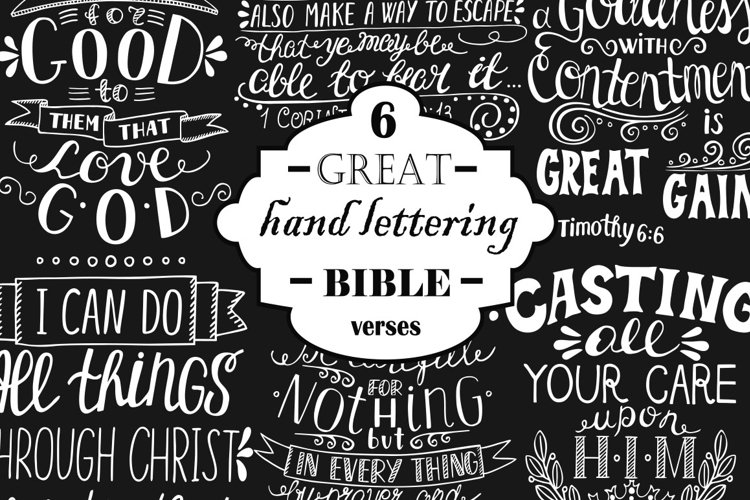 for
GOOD
to
THEM THAT
Love
G·O·D
ALSO MAKE A WAY TO ESCAPE
that ye may be
able to bear it...
1 CORINT
:13
GODLINESS
WITH
Contentment
is
GREAT
GAIN
Timothy 6:6
6
GREAT
hand lettering
BIBLE
verses
I CAN DO
All things
THROUGH CHRIST
careful
FOR
NOTHING
but
IN EVERY THING
by prayer and
CASTING
all
YOUR CARE
upon
H·I·M